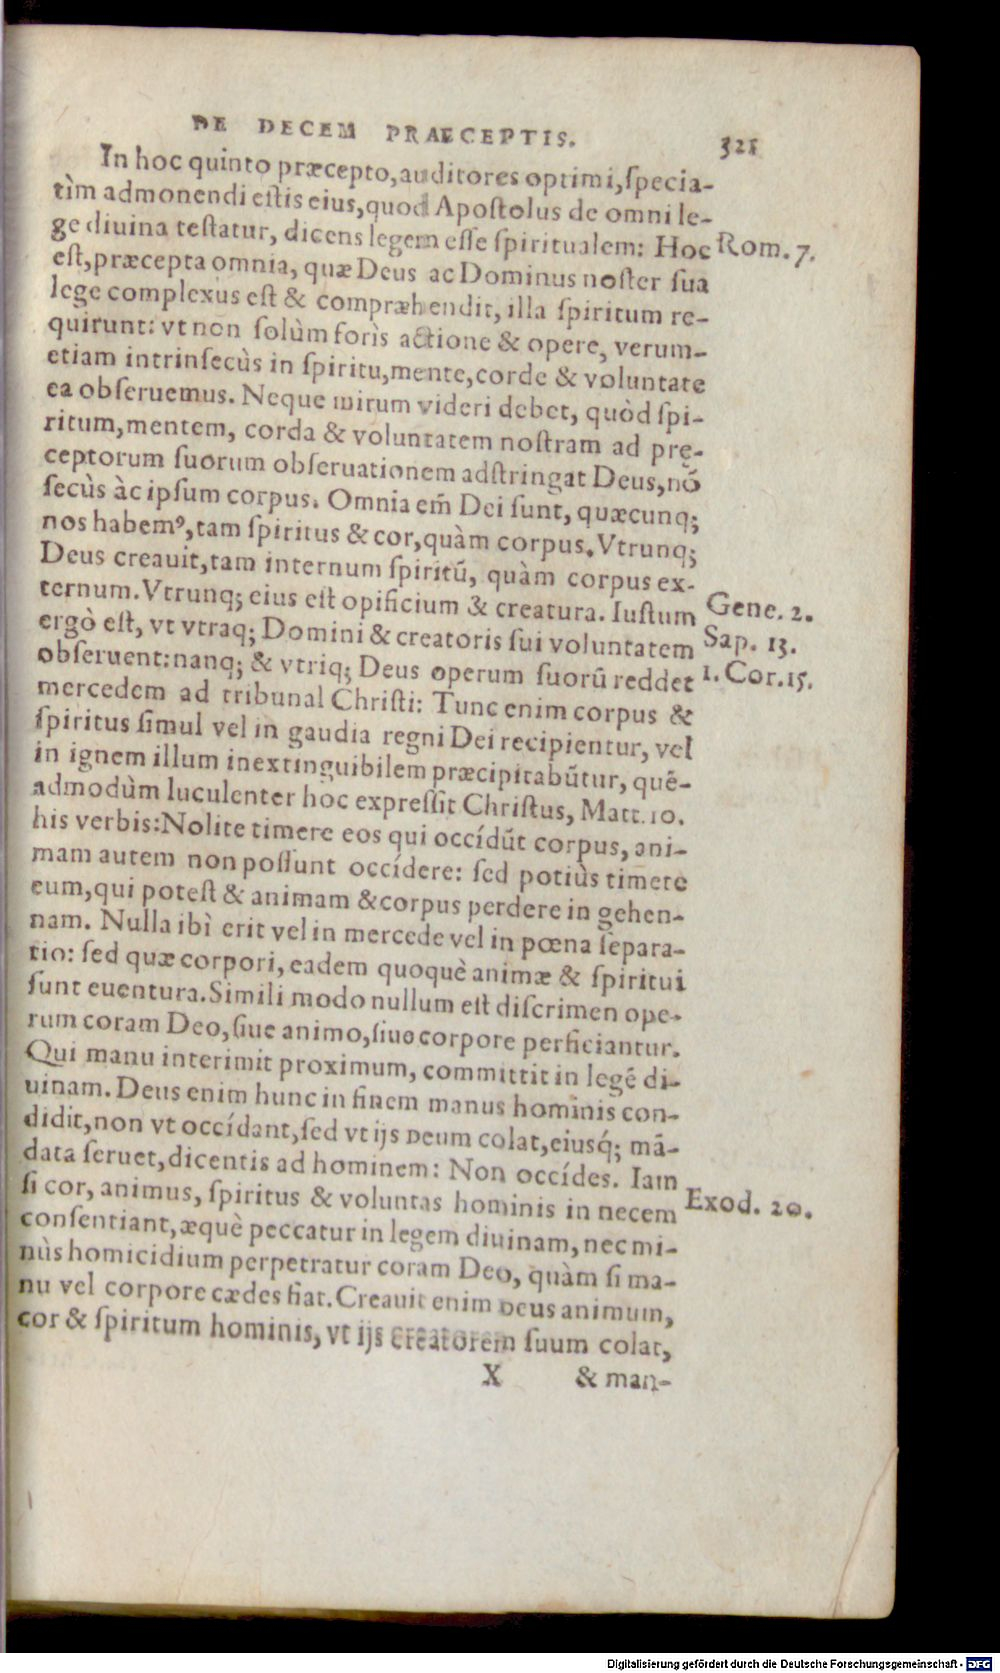 DE DECEM PRAECEPTIS. 321
In hoc quinto præcepto, auditores optimi, ſpecia-
tìm admonendi eſtis eius, quod Apoſtolus de omni le-
ge diuina teſtatur, dicens legem eſſe ſpiritualem: Hoc
Rom. 7.
eſt, præcepta omnia, quæ Deus ac Dominus noſter ſua
lege complexus eſt & compræhendit, illa ſpiritum re-
quirunt: vt non ſolùm forìs actione & opere, verum-
etiam intrinſecùs in ſpiritu, mente, corde & voluntate
ea obſeruemus. Neque mirum videri debet, quòd ſpi-
ritum, mentem, corda & voluntatem noſtram ad prę-
ceptorum ſuorum obſeruationem adſtringat Deus, nõ
ſecùs àc ipſum corpus. Omnia em̃ Dei ſunt, quæcunq;
nos habemꝰ, tam ſpiritus & cor, quàm corpus. Vtrunq;
Deus creauit, tam internum ſpiritũ, quàm corpus ex-
ternum. Vtrunq; eius eſt opificium & creatura. Iuſtum
Gene. 2.
ergò eſt, vt vtraq; Domini & creatoris ſui voluntatem
Sap. 13.
obſeruent: nanq; & vtriq; Deus operum ſuorũ reddet
1. Cor. 15.
mercedem ad tribunal Chriſti: Tunc enim corpus &
ſpiritus ſimul vel in gaudia regni Dei recipientur, vel
in ignem illum inextinguibilem præcipitabũtur, quẽ-
admodùm luculenter hoc expreſſit Chriſtus, Matt. 10.
his verbis: Nolite timere eos qui occídũt corpus, ani-
mam autem non poſſunt occídere: ſed potiùs timete
eum, qui poteſt & animam & corpus perdere in gehen-
nam. Nulla ibì erit vel in mercede vel in pœna ſepara-
tio: ſed quæ corpori, eadem quoquè animæ & ſpiritui
ſunt euentura. Simili modo nullum eſt diſcrimen ope-
rum coram Deo, ſiue animo, ſiue corpore perficiantur.
Qui manu interimit proximum, committit in legẽ di-
uinam. Deus enim hunc in finem manus hominis con-
didit, non vt occídant, ſed vt ijs Deum colat, eiusq́; mã-
data ſeruet, dicentis ad hominem: Non occídes. Iam
ſi cor, animus, ſpiritus & voluntas hominis in necem
Exod. 20.
conſentiant, æquè peccatur in legem diuinam, nec mi-
nùs homicidium perpetratur coram Deo, quàm ſi ma-
nu vel corpore cædes fiat. Creauit enim Deus animum,
cor & ſpiritum hominis, vt ijs creatorem ſuum colat,
X & man-
Digitalisierung gefördert durch die Deutsche Forschungsgemeinschaft - DFG